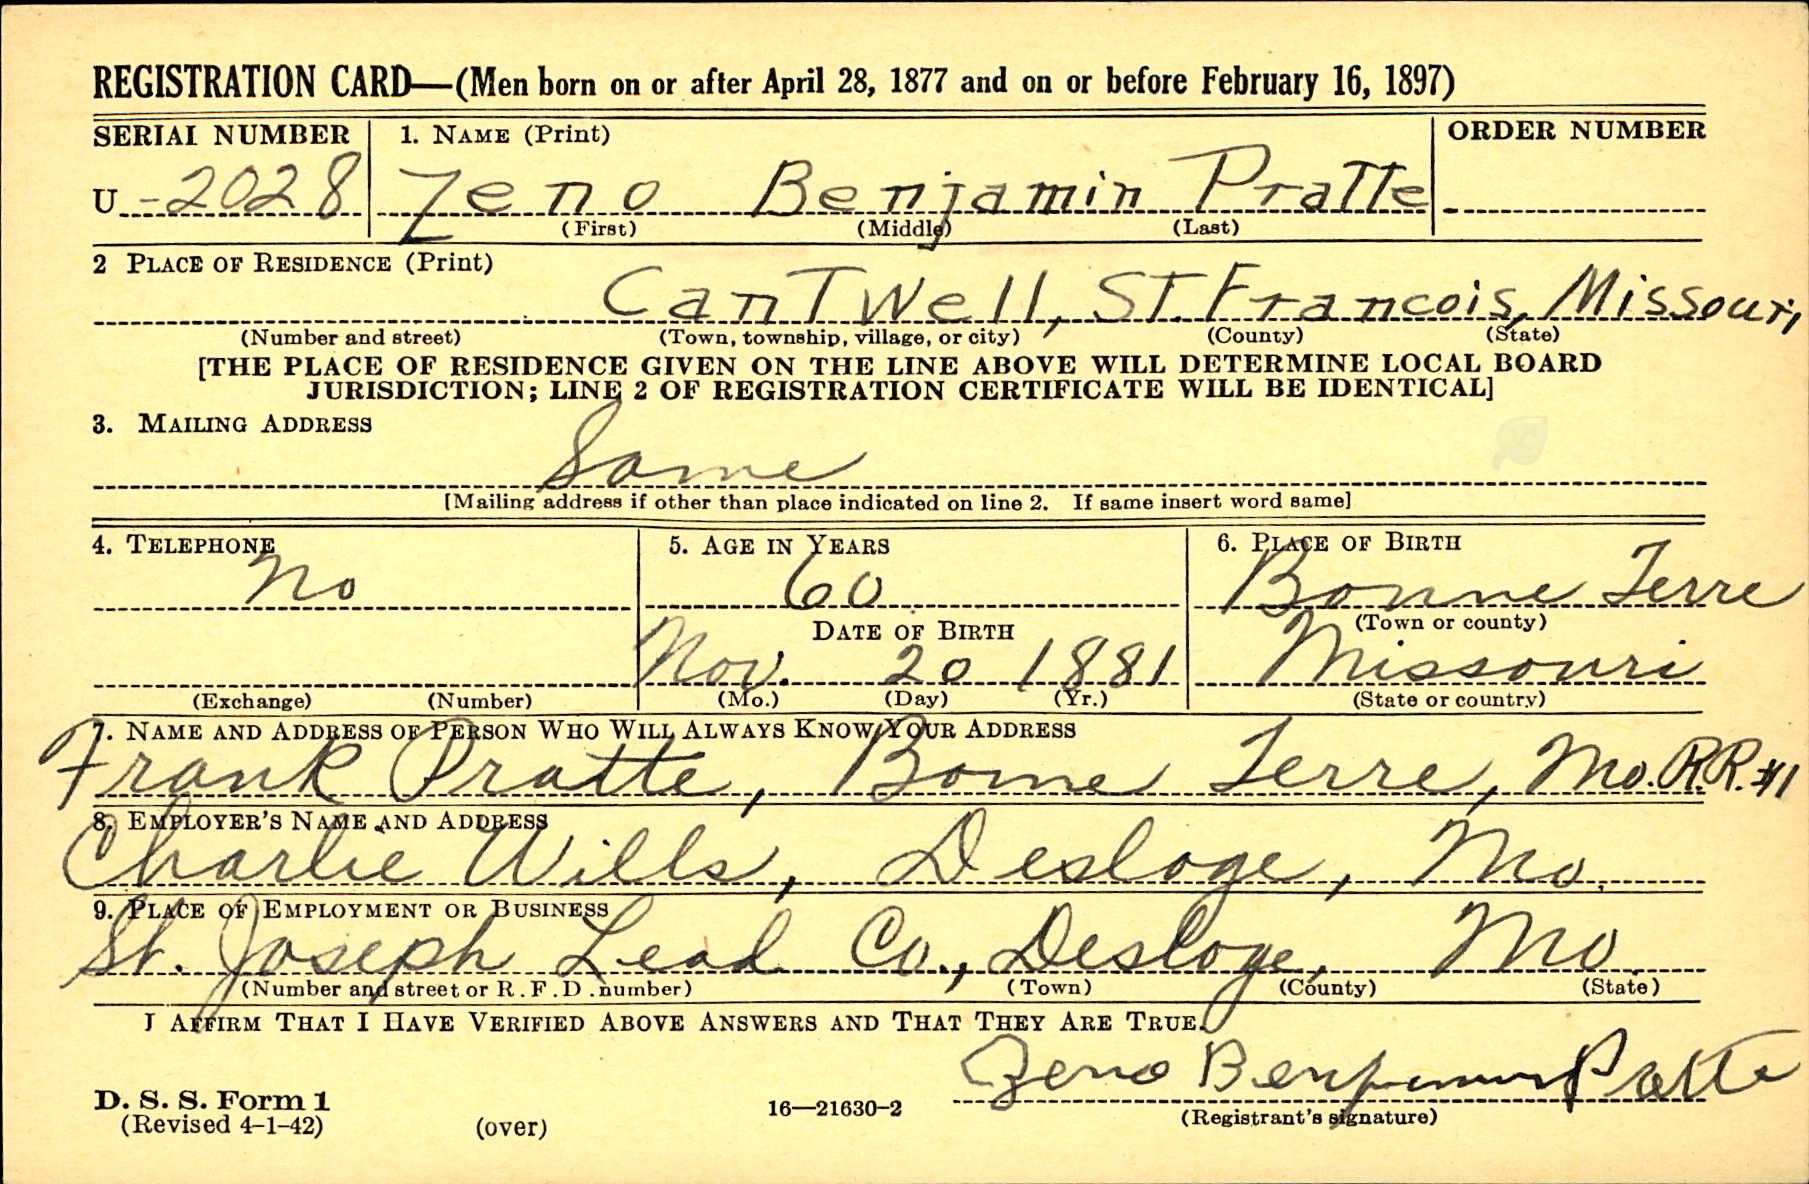 REGISTRATION CARD—(Men born on or after April 28, 1877 and on or before February 16, 1897)
SERIAL NUMBER 1. NAME (Print) ORDER NUMBER
U -2028 Zeno Benjamin Pratte
(First) (Middle) (Last)
2 PLACE OF RESIDENCE (Print)
CanTWell, ST. Francois, Missouri,
(Number and street) (Town, township, village, or city) (County) (State)
[THE PLACE OF RESIDENCE GIVEN ON THE LINE ABOVE WILL DETERMINE LOCAL BOARD
JURISDICTION; LINE 2 OF REGISTRATION CERTIFICATE WILL BE IDENTICAL]
3. MAILING ADDRESS
Same
[Mailing address if other than place indicated on line 2. If same insert word same]
4. TELEPHONE 5. AGE IN YEARS 6. PLACE OF BIRTH
No 60 Bonne Terre
DATE OF BIRTH (Town or county)
Nov. 20 1881 Missouri
(Exchange) (Number) (Mo.) (Day) (Yr.) (State or country)
7. NAME AND ADDRESS OF PERSON WHO WILL ALWAYS KNOW YOUR ADDRESS
Frank Pratte, Bonne Terre, Mo. R.R. #1
8. EMPLOYER'S NAME AND ADDRESS
Charlie Wills, Desloge, Mo.
9. PLACE OF EMPLOYMENT OR BUSINESS
St. Joseph Lead Co., Desloge, Mo.
(Number and street or R. F. D. number) (Town) (County) (State)
I AFFIRM THAT I HAVE VERIFIED ABOVE ANSWERS AND THAT THEY ARE TRUE.
Zeno Benjamin Pratte
D. S. S. Form 1
(Revised 4-1-42) (over) 16—21630-2 (Registrant's signature)